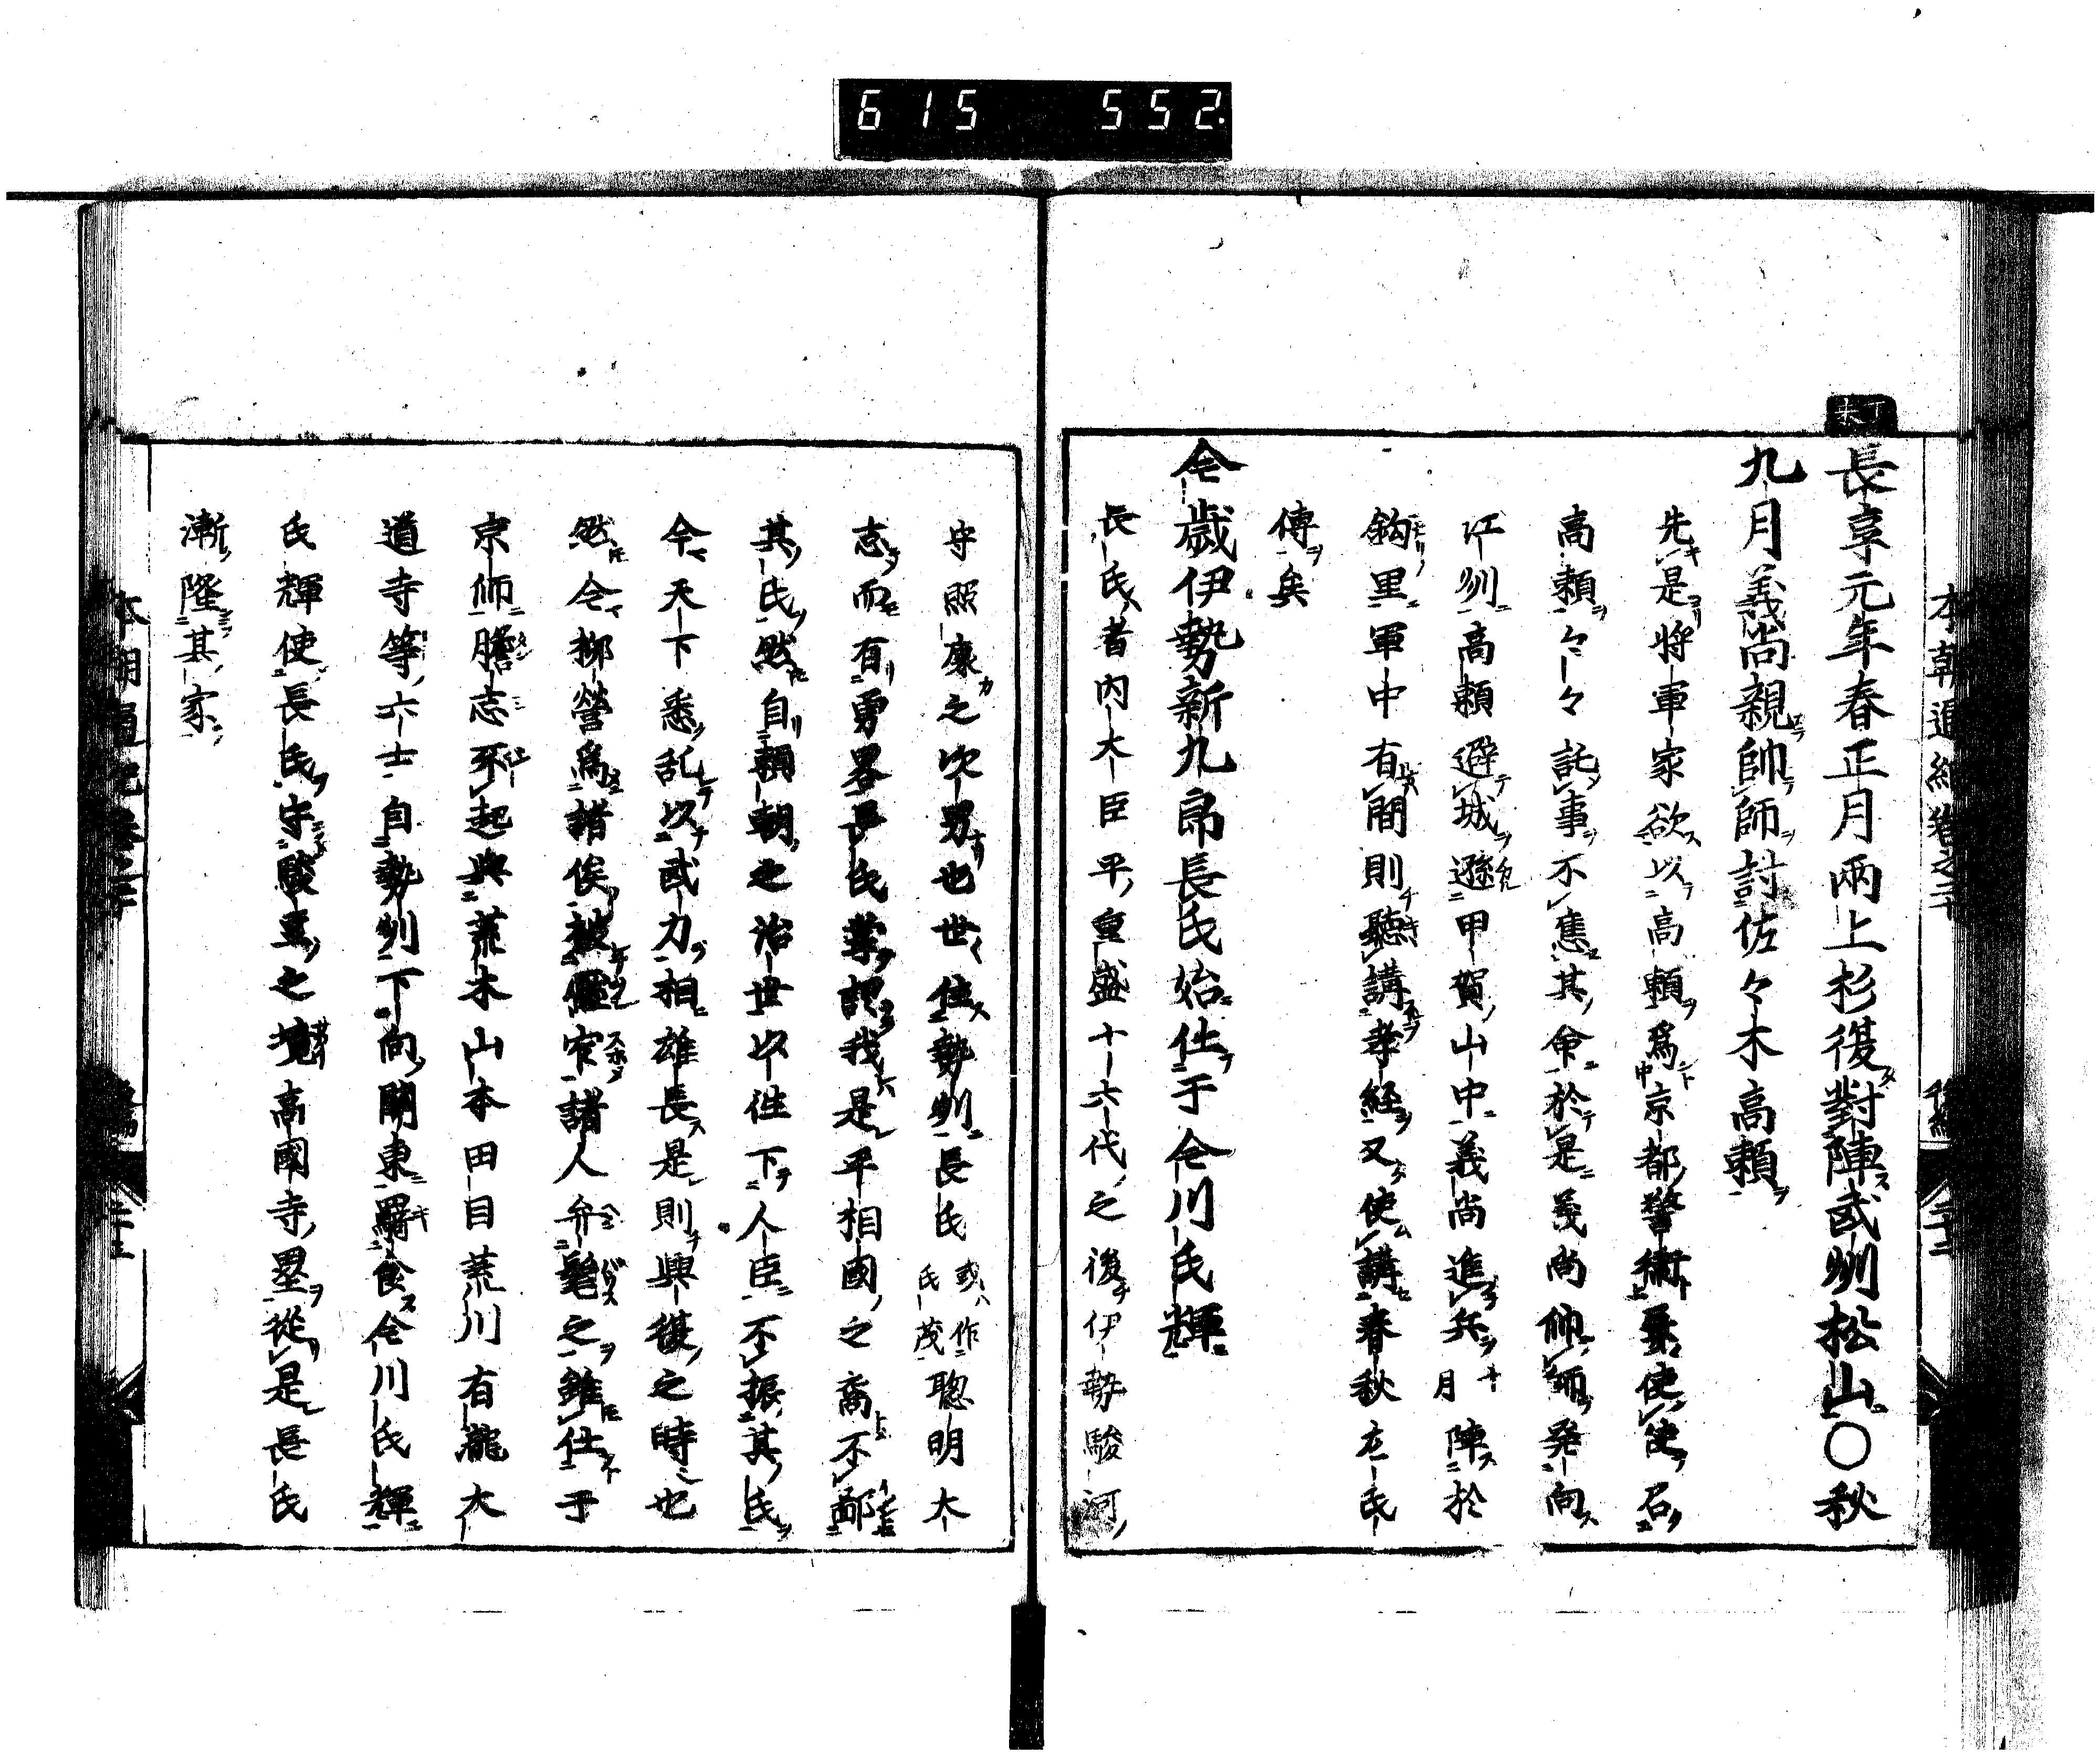 615 552.
本朝通紀卷之二十 後編 二十二
丁未
長享元年春正月兩上杉復對陣武州松山〇秋
九月義尚親帥師討佐々木高頼
先是將軍家欲以高頼爲京都警衛屢使使召
高頼々々託事不應其命於是義尚帥師発向
江州高頼避城遯甲賀山中義尚進兵十月陣於
鈎里軍中有間則聽講孝経又使講春秋左氏
傳矣
今歳伊勢新九郎長氏始仕于今川氏輝
長氏者内大臣平重盛十六代之後伊勢駿河
守照康之次男也世住勢州長氏或作氏茂聡明大
志而有勇畧長氏嘗謂我是平相國之裔不鄙
其氏然自頼朝之治世以徃下人臣不振其氏
今天下悉乱以武力相雄長是則興復之時也
然今柳營爲諸侯被僵窄諸人弁髦之雖仕于
京師膽志不起與荒木山本田目荒川有瀧大
道寺等六士自勢州下向關東羈食今川氏輝
氏輝使長氏守駿豆之境高國寺壘從是長氏
漸隆其家
本朝通紀卷之二十 後編 二十三